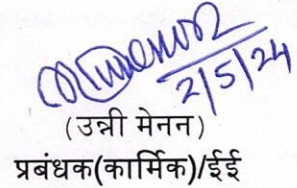 2/5/24
(उन्नी मेनन)
प्रबंधक(कार्मिक)/ईई